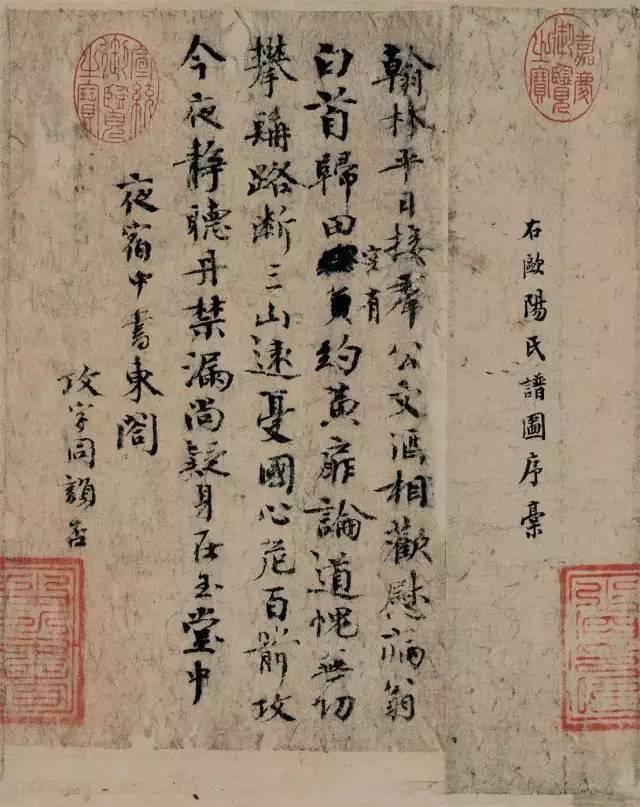 嘉慶御覽之寶
右歐陽氏譜圖序稾
翰林平日接羣公文酒相歡慰病翁
空有
白首歸田負約黃扉論道愧無功
攀髯路斷三山遠憂國心危百箭攻
今夜靜聽丹禁漏尚疑身在玉堂中
夜宿中書東閤
攻字同韻否
宣統御覽之寶